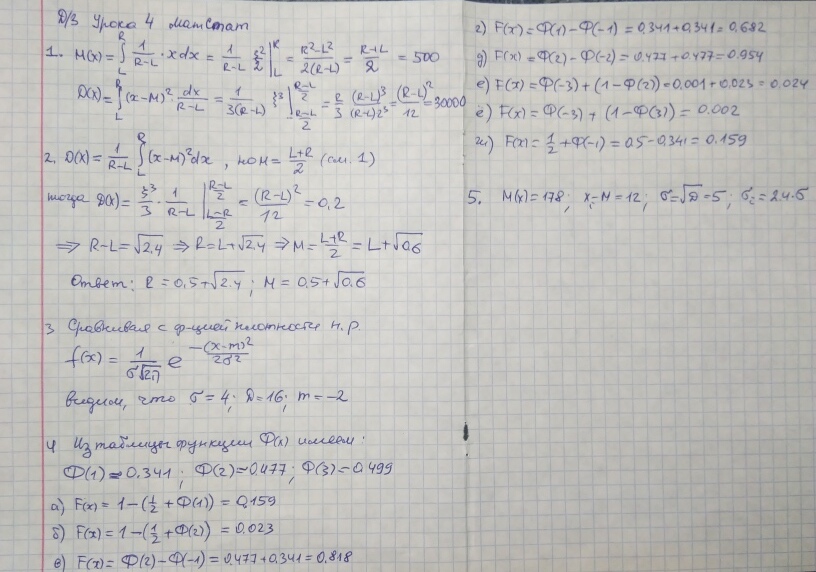 Д/З Урока 4 матстат
1. M(x) = ∫_L^R 1/(R-L) · x dx = 1/(R-L) ξ²/2 |_L^R = (R²-L²)/(2(R-L)) = (R+L)/2 = 500
D(x) = ∫_L^R (x-M)² dx/(R-L) = 1/(3(R-L)) ξ³ |_{(R-L)/2}^{(R-L)/2} = 2/3 (R-L)³/((R-L)2³) = (R-L)²/12 = 30000
2. D(x) = 1/(R-L) ∫_L^R (x-M)² dx, но M = (L+R)/2 (см. 1)
тогда D(x) = ξ³/3 · 1/(R-L) |_{(L-R)/2}^{(R-L)/2} = (R-L)²/12 = 0,2
⇒ R-L = √2,4 ⇒ R = L+√2,4 ⇒ M = (L+R)/2 = L+√0,6
Ответ: R = 0,5+√2.4; M = 0.5+√0.6
3 Сравнивая с ф-цией плотности н.р.
f(x) = 1/(σ√2π) e^(-(x-m)²/2σ²)
видим, что σ = 4; D = 16; m = -2
4 Из таблицы функции Φ(x) имеем:
Φ(1) ≈ 0.341; Φ(2) ≈ 0.477; Φ(3) = 0.499
а) F(x) = 1-(1/2+Φ(1)) = 0,159
б) F(x) = 1-(1/2+Φ(2)) = 0.023
в) F(x) = Φ(2)-Φ(-1) = 0.477+0.341 = 0.818
г) F(x) = Φ(1)-Φ(-1) = 0,341+0,341 = 0.682
д) F(x) = Φ(2)-Φ(-2) = 0.477+0.477 = 0.954
е) F(x) = Φ(-3)+(1-Φ(2)) = 0.001+0.023 = 0.024
ё) F(x) = Φ(-3)+(1-Φ(3)) = 0.002
ж) F(x) = 1/2+Φ(-1) = 0.5-0.341 = 0.159
5. M(x) = 178; xᵢ-M = 12; σ = √D = 5; σᵢ = 2.4·σ